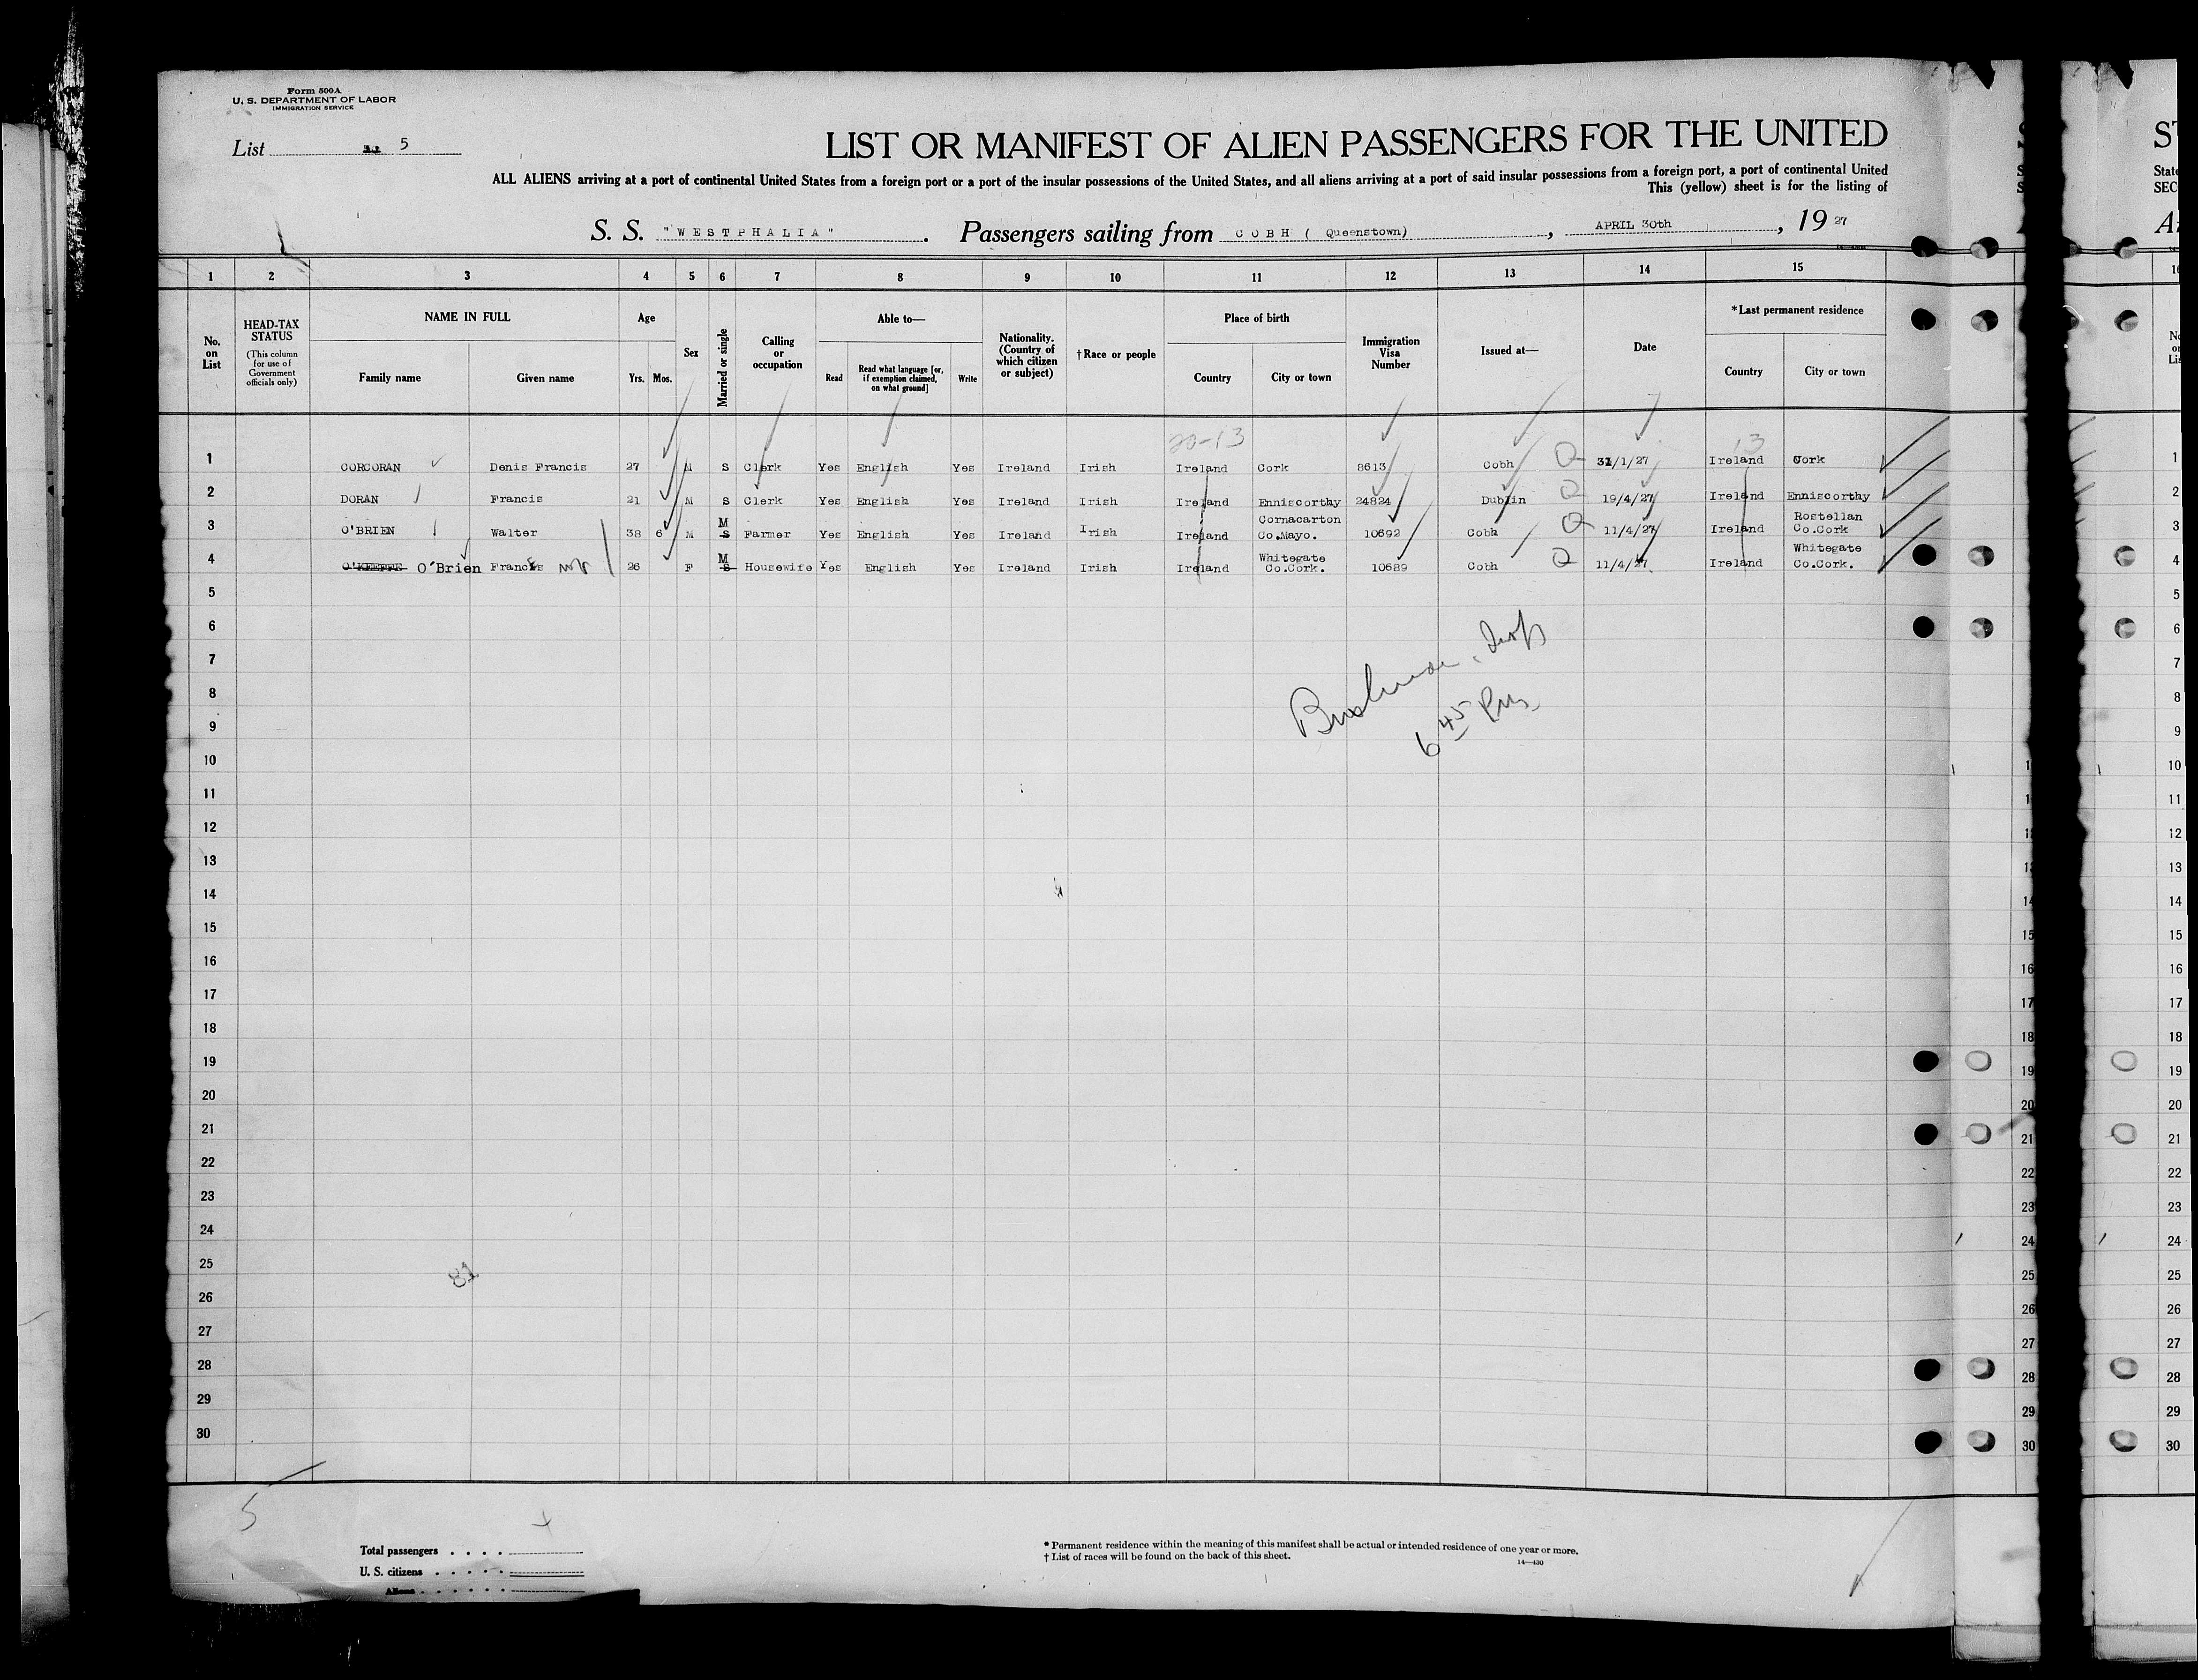 Form 500A
U. S. DEPARTMENT OF LABOR
IMMIGRATION SERVICE
List 5
LIST OR MANIFEST OF ALIEN PASSENGERS FOR THE UNITED
ALL ALIENS arriving at a port of continental United States from a foreign port or a port of the insular possessions of the United States, and all aliens arriving at a port of said insular possessions from a foreign port, a port of continental United
This (yellow) sheet is for the listing of
S. S. "WESTPHALIA". Passengers sailing from COBH ( Queenstown), APRIL 30th, 19 27
1 2 3 4 5 6 7 8 9 10 11 12 13 14 15
No. on List
HEAD-TAX STATUS (This column for use of Government officials only)
NAME IN FULL
Family name Given name
Age
Yrs. Mos.
Sex
Married or single
Calling or occupation
Able to—
Read Read what language [or, if exemption claimed, on what ground] Write
Nationality. (Country of which citizen or subject)
†Race or people
Place of birth
Country City or town
Immigration Visa Number
Issued at—
Date
*Last permanent residence
Country City or town
20-13 13
1 CORCORAN Denis Francis 27 M S Clerk Yes English Yes Ireland Irish Ireland Cork 8613 Cobh 31/1/27 Ireland Cork
2 DORAN Francis 21 M S Clerk Yes English Yes Ireland Irish Ireland Enniscorthy 24824 Dublin 19/4/27 Ireland Enniscorthy
3 O'BRIEN Walter 38 6 M M S Farmer Yes English Yes Ireland Irish Ireland Cornacarton Co.Mayo. 10692 Cobh 11/4/27 Ireland Rostellan Co.Cork
4 O'KEEFFE O'Brien Frances 26 F M S Housewife Yes English Yes Ireland Irish Ireland Whitegate Co.Cork. 10689 Cobh 11/4/27 Ireland Whitegate Co.Cork.
5
6
7
8
9
10
11
12
13
14
15
16
17
18
19
20
21
22
23
24
25
26
27
28
29
30
6 45 Pm
81
5
Total passengers
U. S. citizens
Aliens
* Permanent residence within the meaning of this manifest shall be actual or intended residence of one year or more.
† List of races will be found on the back of this sheet.
14—430